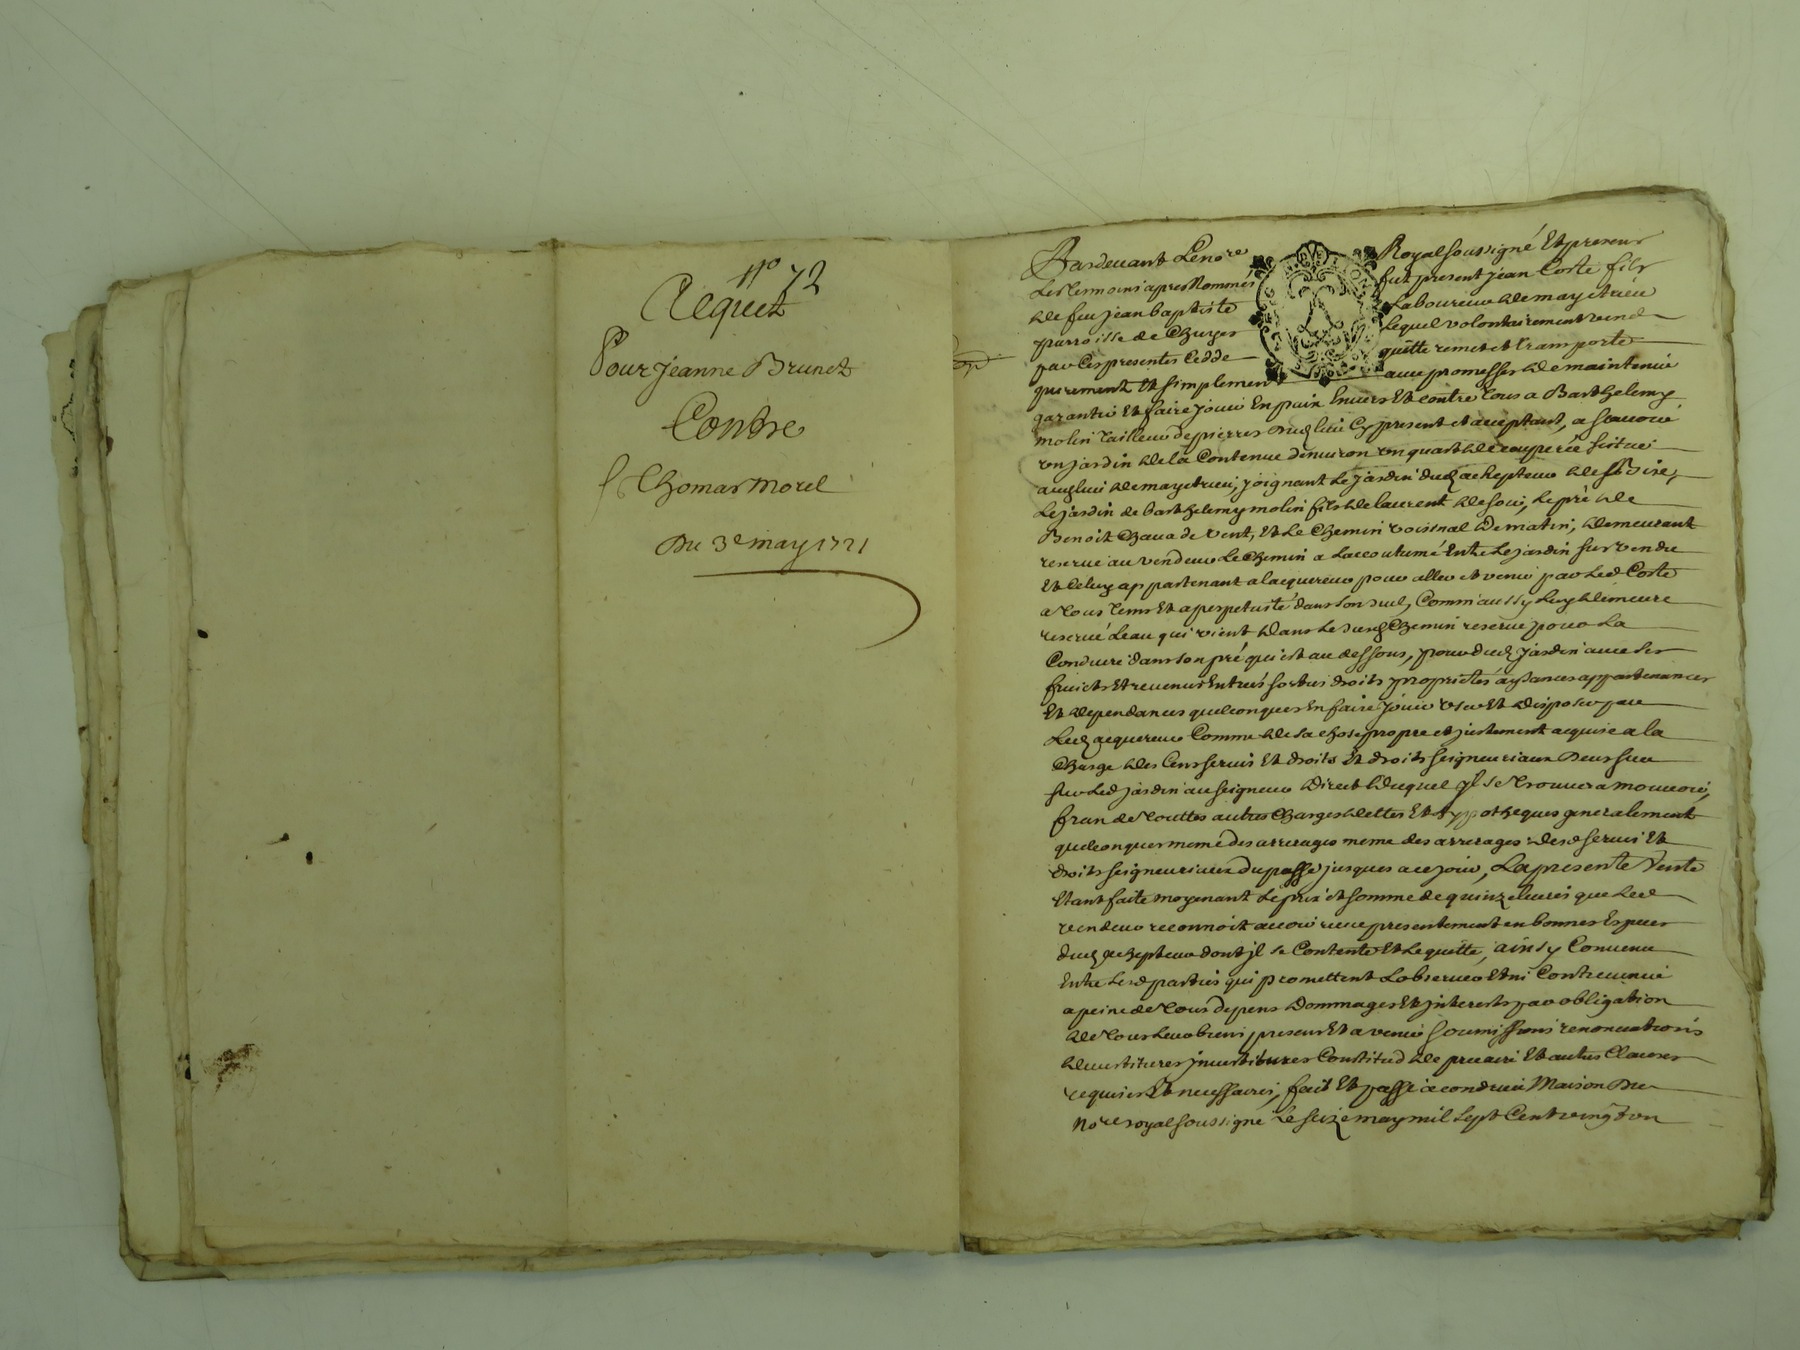 n° 72
Acquit
Pour Jeanne Brunet
Contre
Thomas Morel
Du 3e may 1721
Pardevant Le no.re Royal Soussigné Et present
Les Temoins apres Nommés fut present jean Coste fils
de feu jean baptiste Laboureur de mayetrieu
parroisse de Chuyer Lequel volontairement vend
par Ces presentes Cedde quitte remet et tramporte
purement Et simplement avec promesses de maintenir
garantir Et faire jouir En paix Envers Et contre tous a Barthelemy
molin tailleur de pierres dud lieu Cy present et acceptant, a scavoir
un jardin de la Contenue d'environ un quart de couperée scitué
aud lieu de mayetrieu, joignant Le jardin dud achepteur de Bise,
Le jardin de barthelemy molin fils de laurent de soir, Le pré de
Benoit Chava de vent, Et Le Chemin voisinal de matin, demeurant
reservé au vendeur Le Chemin a Laccoutumé Entre Le jardin sus vendu
Et Celuy appartenant a lacquereur pour aller et venir par Led Coste
a tous tems Et a perpetuité dans son , Comm'aussy Luy demeure
reservé Leau qui vient dans Le susd Chemin reservé pour La
Conduire dans son pré qui est au dessous, pour dud jardin avec ses
fruicts Et revenus Entrées sorties droits proprietés aysances appartenances
Et dependances quelconques En faire jouir user Et disposer par
Led acquereur Comme de sa chose propre et justement acquise a la
Charge des Cens servis Et droits Et droits seigneuriaux Deus sur
sur Led jardin au seigneur Direct duquel jl se trouvera mouvoir,
franc de touttes autres Charges dettes Et hypotheques generalement
quelconques meme des arrerages meme des arrerages desd servis Et
droits seigneuriaux du passé jusques a ce jour, La presente Vente
Etant faite moyenant Le prix et somme de quinze livres que Led
vendeur reconnoit avoir receu presentement en bonnes Especes
dud achepteur dont jl se Contente Et Le quitte, ainsy Convenu
Entre Lesd parties qui promettent Lobserver Et ni Contrevenir
a peine de tous depens dommages Et jnterests par obligation
de tous Leurs biens presens Et a venir soumissions renonciations
devestitures jnvestitures Constitud de precaire Et autres Clauses
requises Et necessaires, fait Et passé a condrieu Maison Du
No.re royal soussigné Le seize may mil Sept Cent vingt un